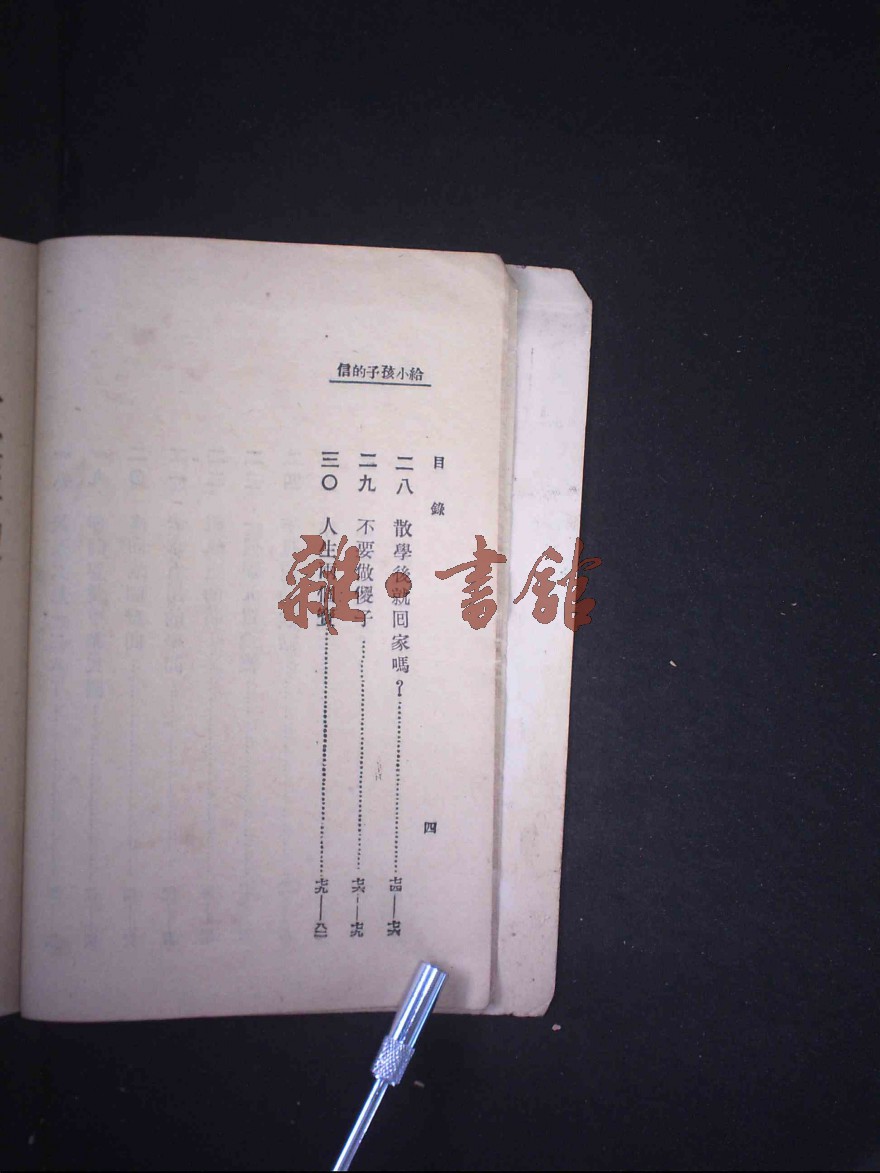 給小孩子的信
目錄 四
二八 散學後就回家嗎？……七四——七六
二九 不要做儍子……七六——七九
三〇 人生兩個寶……七九——八二
雜·書館